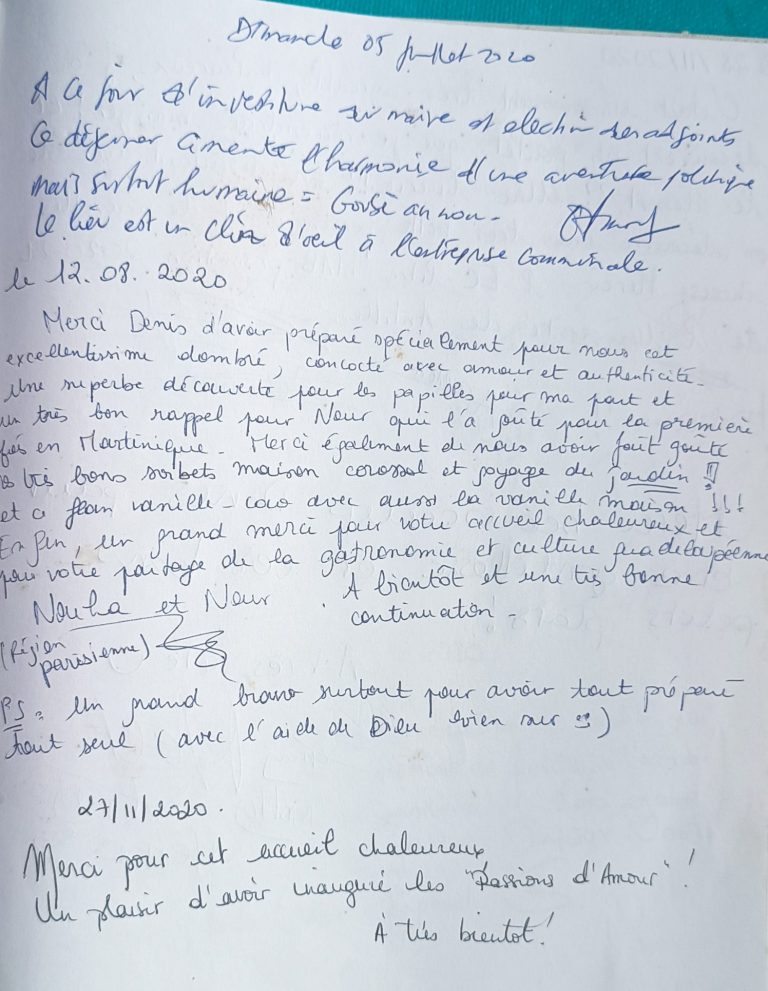 Dimanche 05 Juillet 2020
A ce jour d'investiture du maire et election des adjoints
Ce déjeuner cimente l'harmonie d'une aventure politique
mais surtout humaine =
Le lieu est un clin d'oeil à l'entreprise communale.
le 12.08.2020
Merci Denis d'avoir préparé spécialement pour nous cet
excellentissime dombré, concocté avec amour et authenticité.
Une superbe découverte pour les papilles pour ma part et
un très bon rappel pour Nour qui l'a goûté pour la première
fois en Martinique. Merci également de nous avoir fait goûté
les très bons sorbets maison corossol et goyage du jardin !!
et ce flan vanille-coco avec aussi la vanille maison !!!
Enfin, un grand merci pour votre accueil chaleureux et
pour votre partage de la gastronomie et culture guadeloupéenne
A bientôt et une très bonne
continuation -
Nouha et Nour
(Région
parisienne)
PS : Un grand bravo surtout pour avoir tout préparé
tout seul (avec l'aide de Dieu bien sur)
27/11/2020.
Merci pour cet accueil chaleureux
Un plaisir d'avoir inauguré les "Passions d'Amour" !
À très bientot !